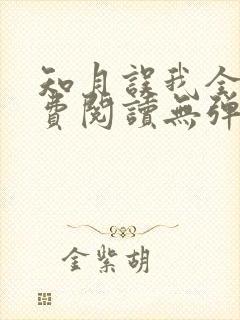 知月誤我全
費閱讀無彈
金紫胡